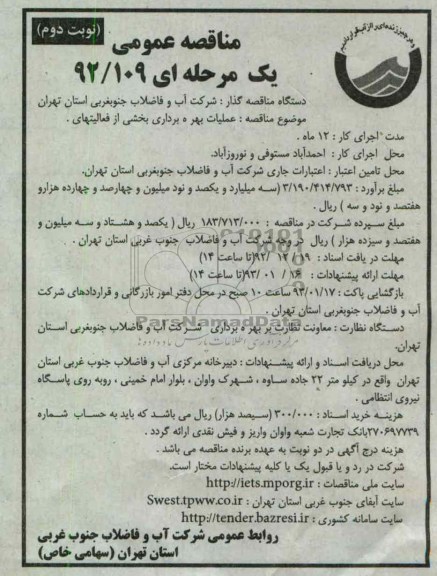 (نوبت دوم)
و هر چیز زنده‌ای را از آب قرار دادیم
مناقصه عمومی
یک مرحله ای ۹۲/۱۰۹
دستگاه مناقصه گذار : شرکت آب و فاضلاب جنوبغربی استان تهران
موضوع مناقصه : عملیات بهر ه برداری بخشی از فعالیتهای .
مدت اجرای کار : ۱۲ ماه .
محل اجرای کار : احمدآباد مستوفی و نوروزآباد.
محل تامین اعتبار : اعتبارات جاری شرکت آب و فاضلاب جنوبغربی استان تهران.
مبلغ برآورد : ۳/۱۹۰/۴۱۴/۷۹۳ (سه میلیارد و یکصد و نود میلیون و چهارصد و چهارده هزارو
هفتصد و نود و سه ) ریال .
مبلغ سپرده شرکت در مناقصه : ۱۸۳/۷۱۳/۰۰۰ ریال ( یکصد و هشتاد و سه میلیون و
هفتصد و سیزده هزار ) ریال در وجه شرکت آب و فاضلاب جنوب غربی استان تهران .
مهلت در یافت اسناد : ۱۹/ ۱۲ /۹۲(تا ساعت ۱۴)
مهلت ارائه پیشنهادات : ۱۶ / ۰۱ /۹۳(تا ساعت ۱۴)
بازگشایی پاکت : ۹۳/۰۱/۱۷ ساعت ۱۰ صبح در محل دفتر امور بازرگانی و قراردادهای شرکت
آب و فاضلاب جنوبغربی استان تهران .
ParsNamadData
دستگاه نظارت : معاونت نظارت بر بهر ه برداری شرکت آب و فاضلاب جنوبغربی استان
تهران.
محل دریافت اسناد و ارائه پیشنهادات : دبیرخانه مرکزی آب و فاضلاب جنوب غربی استان
تهران واقع در کیلو متر ۲۲ جاده ساوه ، شهرک واوان ، بلوار امام خمینی ، روبه روی پاسگاه
نیروی انتظامی .
هزینه خرید اسناد : ۳۰۰/۰۰۰ (سیصد هزار) ریال می باشد که باید به حساب شماره
۲۷۰۶۹۷۷۳۹بانک تجارت شعبه واوان واریز و فیش نقدی ارائه گردد .
هزینه درج آگهی در دو نوبت به عهده برنده مناقصه می باشد .
شرکت در رد و یا قبول یک یا کلیه پیشنهادات مختار است.
سایت ملی مناقصات : http://iets.mporg.ir
سایت آبفای جنوب غربی استان تهران : Swest.tpww.co.ir
سایت سامانه کشوری : http://tender.bazresi.ir
روابط عمومی شرکت آب و فاضلاب جنوب غربی
استان تهران (سهامی خاص)